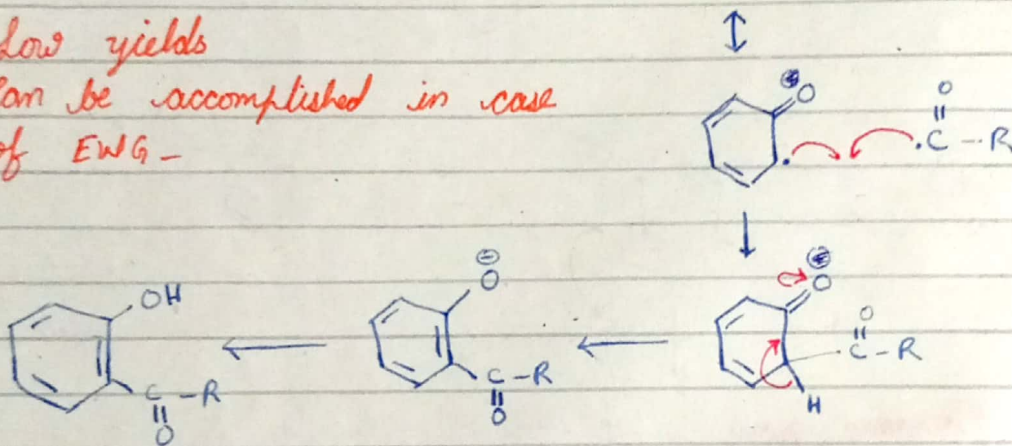 Low yields
Can be accomplished in case
of EWG -
O
O
.C - R
O
OH
O
O
C - R
C - R
C - R
O
O
H